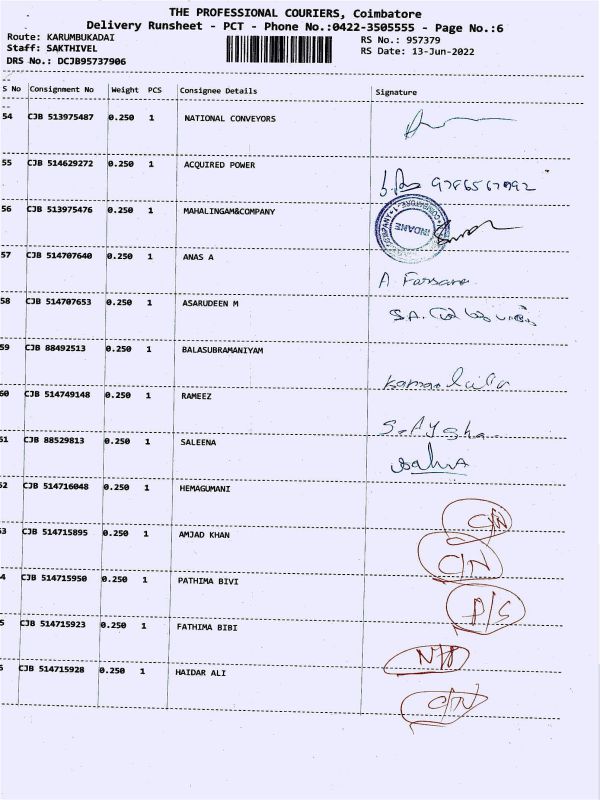 THE PROFESSIONAL COURIERS, Coimbatore
Delivery Runsheet - PCT - Phone No.:0422-3505555 - Page No.:6
Route: KARUMBUKADAI
Staff: SAKTHIVEL
DRS No.: DCJB95737906
RS No.: 957379
RS Date: 13-Jun-2022
S No Consignment No Weight PCS Consignee Details Signature
54 CJB 513975487 0.250 1 NATIONAL CONVEYORS
55 CJB 514629272 0.250 1 ACQUIRED POWER
56 CJB 513975476 0.250 1 MAHALINGAM&COMPANY INDANE
57 CJB 514707640 0.250 1 ANAS A A. Farsana
58 CJB 514707653 0.250 1 ASARUDEEN M S.A.
59 CJB 88492513 0.250 1 BALASUBRAMANIYAM
60 CJB 514749148 0.250 1 RAMEEZ S. Aysha
61 CJB 88529813 0.250 1 SALEENA
62 CJB 514716048 0.250 1 HEMAGUMANI C/N
63 CJB 514715895 0.250 1 AMJAD KHAN C/N
4 CJB 514715950 0.250 1 PATHIMA BIVI P/S
5 CJB 514715923 0.250 1 FATHIMA BIBI
6 CJB 514715928 0.250 1 HAIDAR ALI C/N